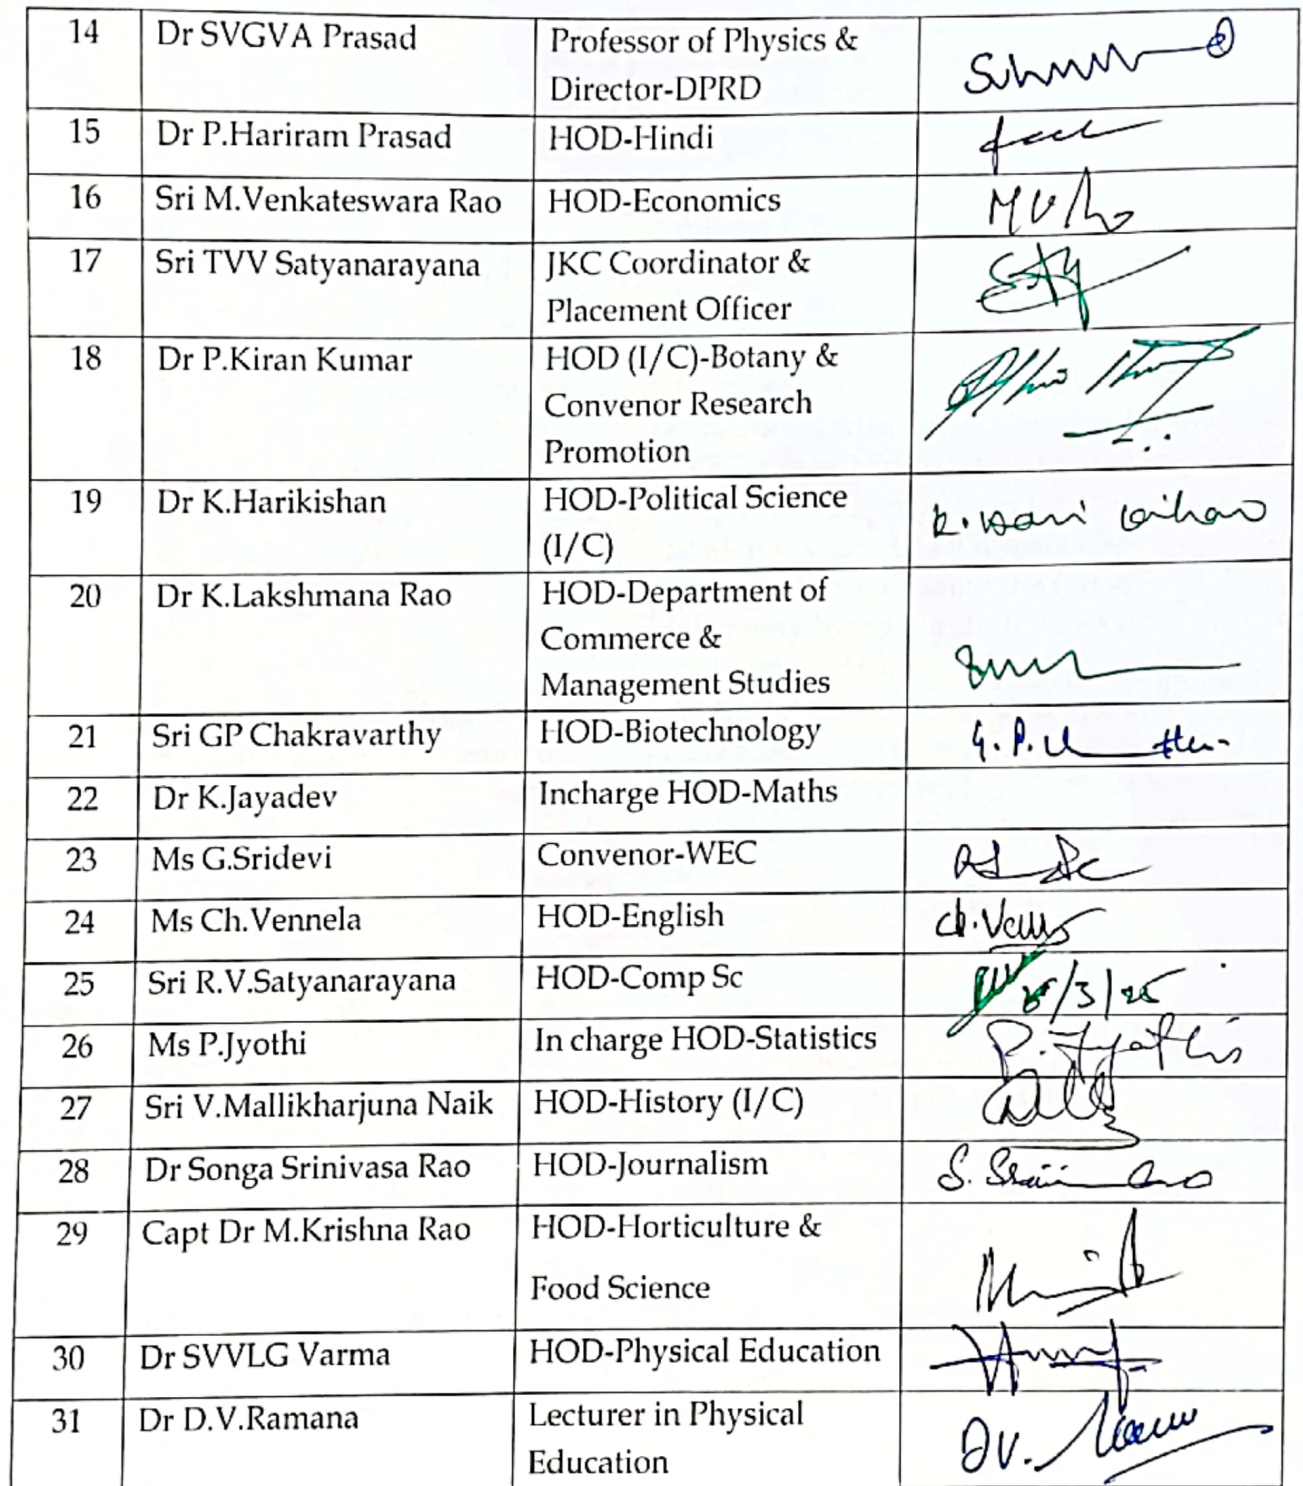 14 Dr SVGVA Prasad Professor of Physics &
Director-DPRD
15 Dr P.Hariram Prasad HOD-Hindi
16 Sri M.Venkateswara Rao HOD-Economics
17 Sri TVV Satyanarayana JKC Coordinator &
Placement Officer
18 Dr P.Kiran Kumar HOD (I/C)-Botany &
Convenor Research
Promotion
19 Dr K.Harikishan HOD-Political Science
(I/C)
20 Dr K.Lakshmana Rao HOD-Department of
Commerce &
Management Studies
21 Sri GP Chakravarthy HOD-Biotechnology
22 Dr K.Jayadev Incharge HOD-Maths
23 Ms G.Sridevi Convenor-WEC
24 Ms Ch.Vennela HOD-English
25 Sri R.V.Satyanarayana HOD-Comp Sc
26 Ms P.Jyothi In charge HOD-Statistics P. Jyothi
27 Sri V.Mallikharjuna Naik HOD-History (I/C)
28 Dr Songa Srinivasa Rao HOD-Journalism
29 Capt Dr M.Krishna Rao HOD-Horticulture &
Food Science
30 Dr SVVLG Varma HOD-Physical Education
31 Dr D.V.Ramana Lecturer in Physical
Education